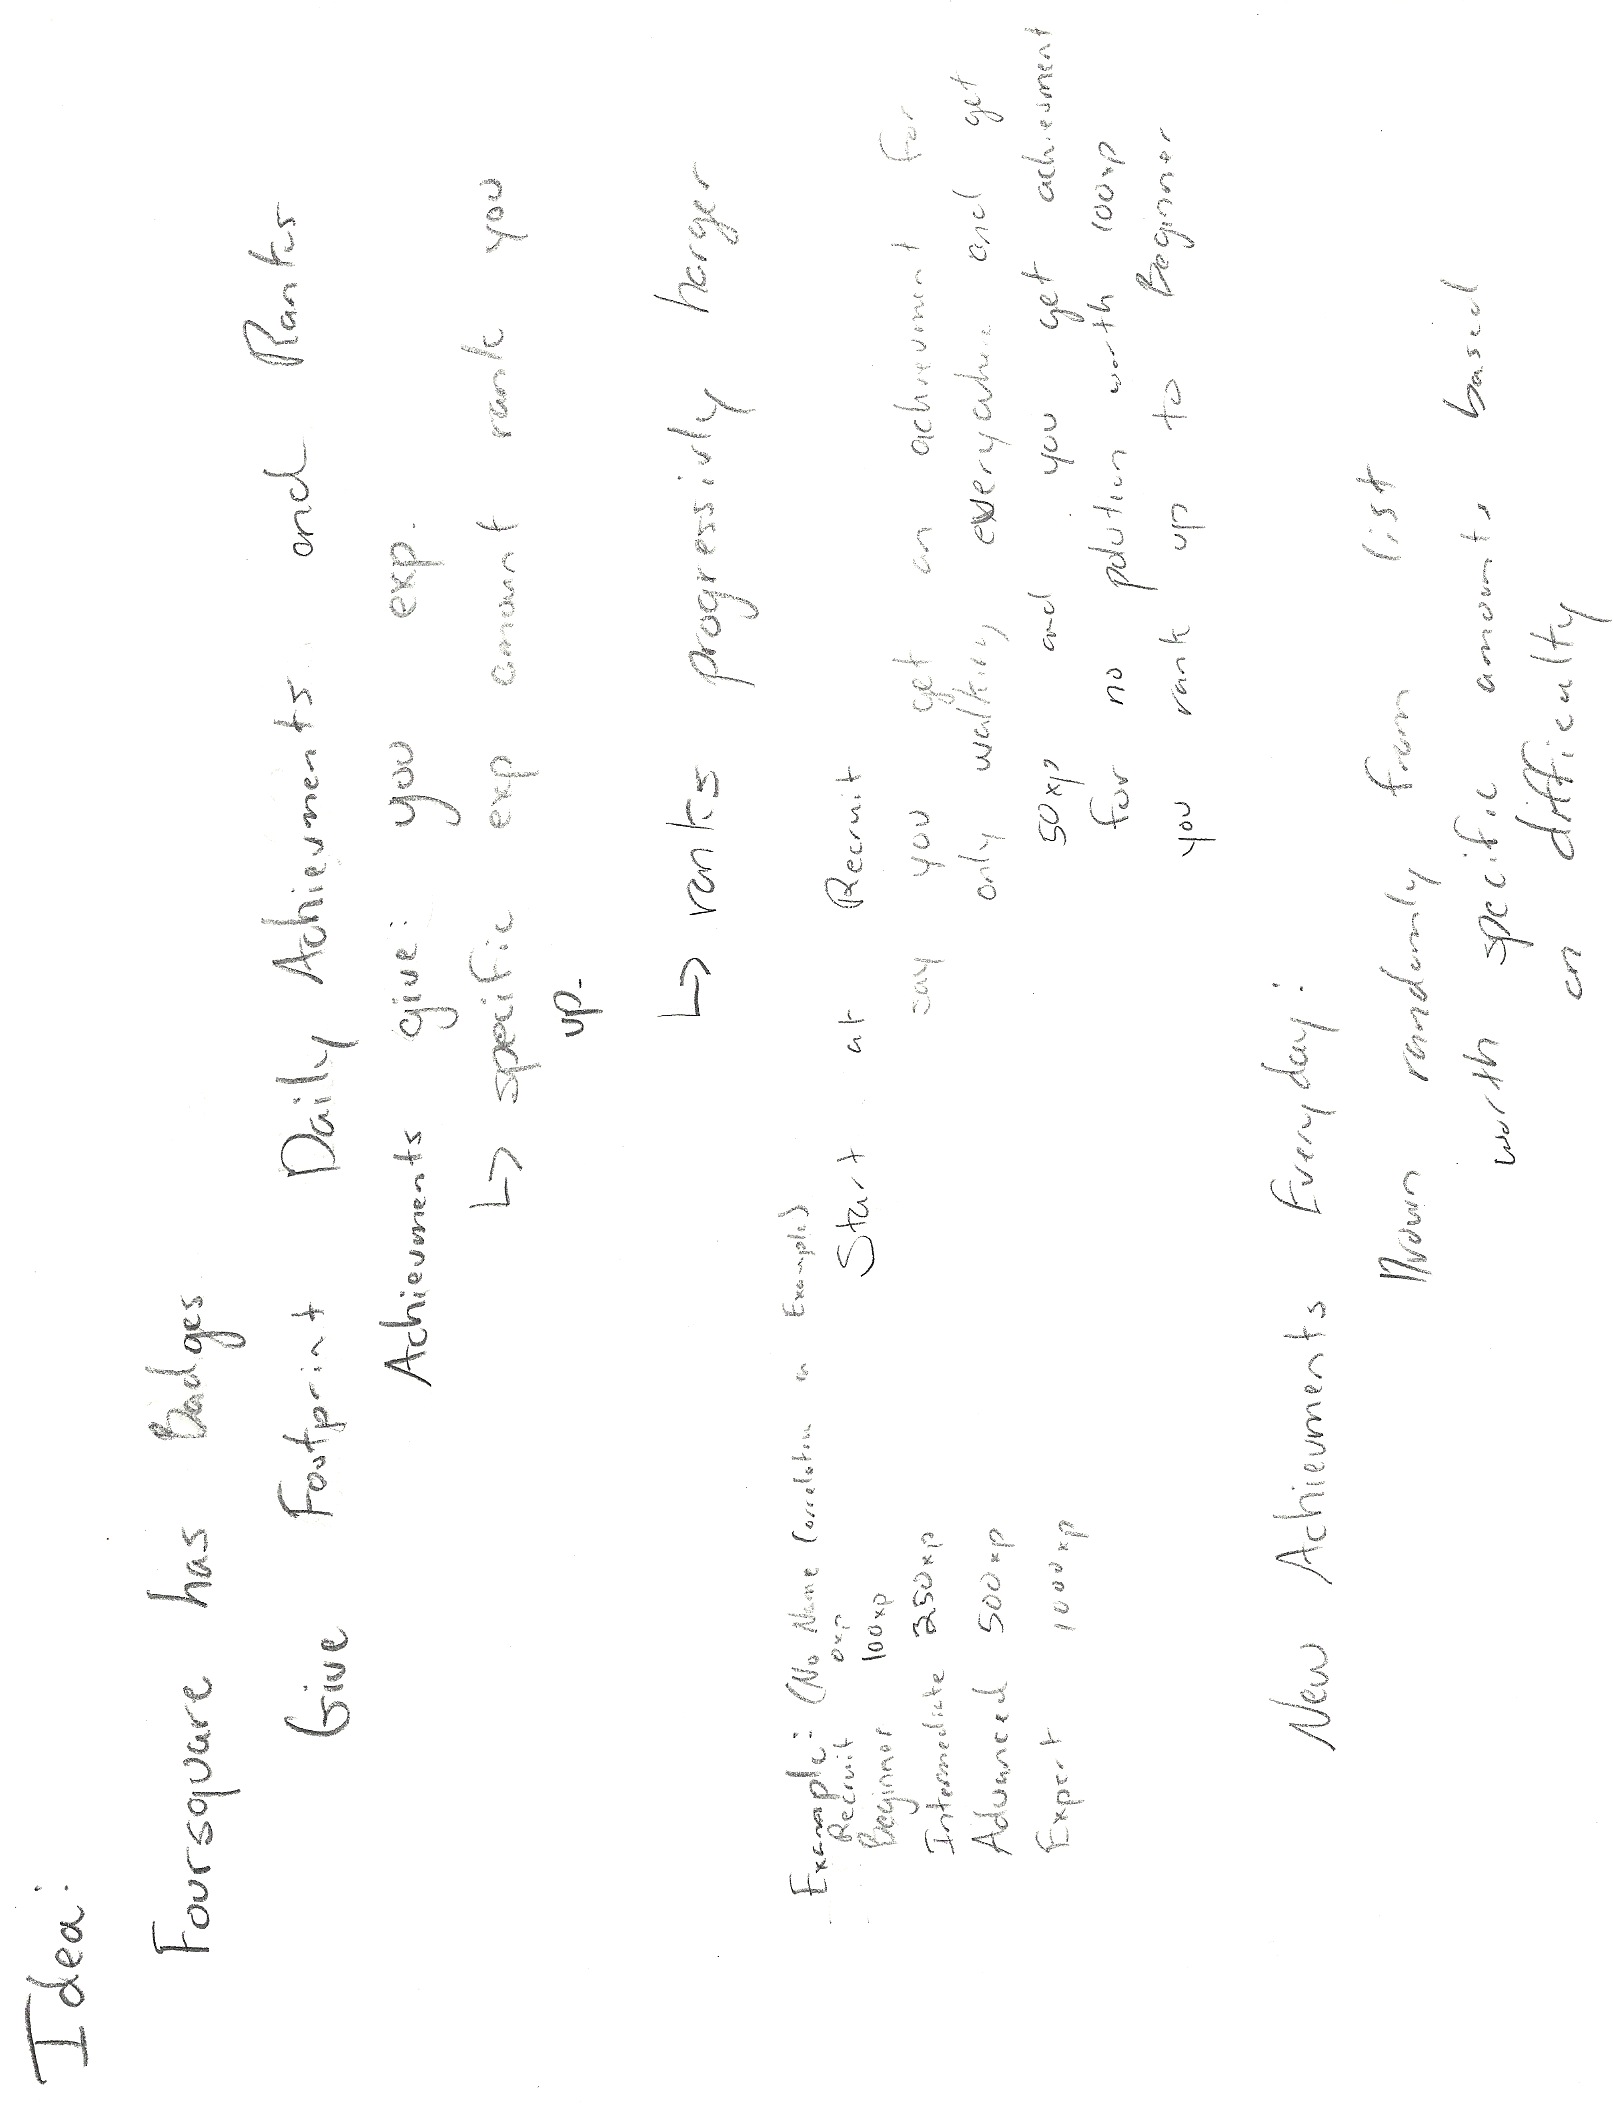 Idea:
Foursquare has Badges
Give Footprint Daily Achievments and Ranks
Achievments give: you exp.
↳ specific exp amount rank you
up.
↳ ranks progressivly harger
Example: (No Name Correlation in Example)
Recruit 0xp
Beginnor 100xp
Intermediate 250xp
Advanced 500xp
Expert 1000xp
Start at Recruit
say you get an achievment for
only walking everywhere and get
50xp and you get achievment
for no polution worth 100xp
you rank up to Beginnor
New Achievments Everyday:
Drawn randomly from list
worth specific amounts based
on difficulty